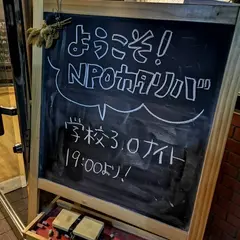 ようこそ!
NPOカタリバ
学校3.0ナイト
19:00より!